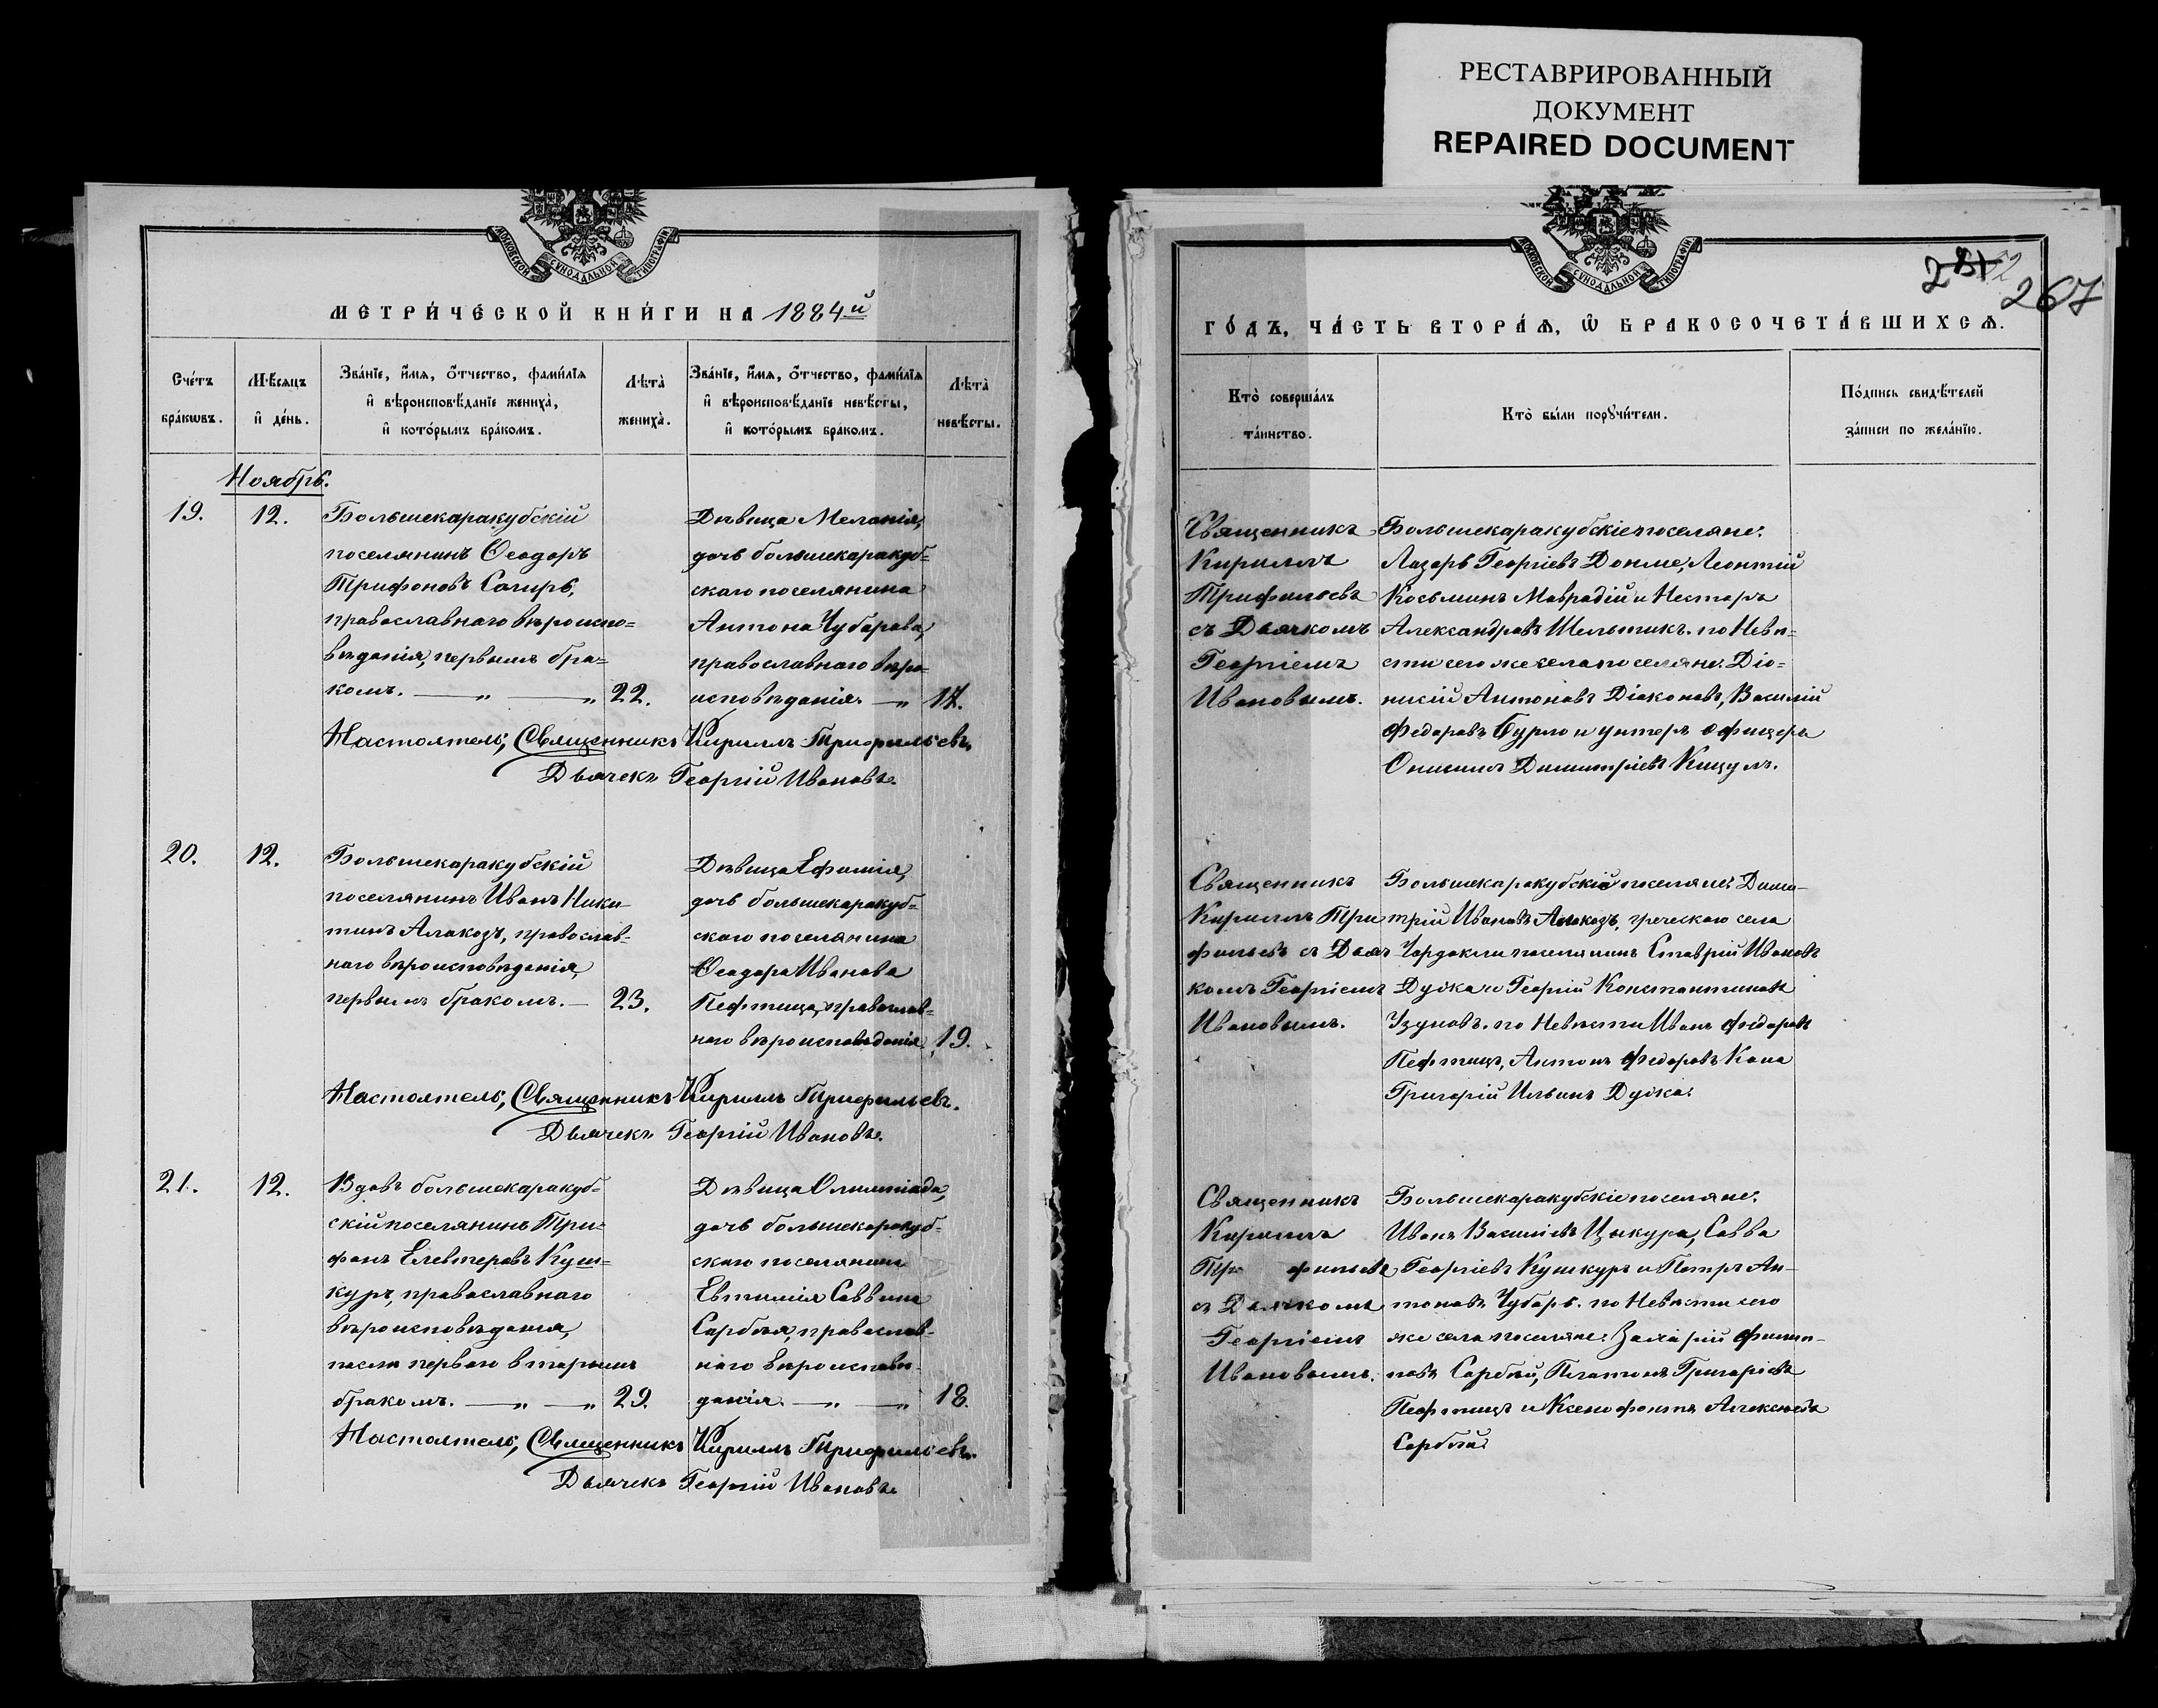 РЕСТАВРИРОВАННЫЙ
ДОКУМЕНТ
REPAIRED DOCUMENT
МОСКОВСКОЙ СУНОДАЛЬНОЙ ТИПОГРАФІИ
МЕТРИ́ЧЕСКОЙ КНИ́ГИ НА 1884й
Сче́тъ
бра́кѡвъ.
Мѣ́сяцъ
и҆ де́нь.
Зва́нїе, и҆́мѧ, ѻ҆́тчество, фами́лїѧ
и҆ вѣроисповѣ́данїе жениха̀,
и҆ кото́рымъ бра́комъ.
Лѣта̀
жениха̀.
Зва́нїе, и҆́мѧ, ѻ҆́тчество, фами́лїѧ
и҆ вѣроисповѣ́данїе невѣ́сты,
и҆ кото́рымъ бра́комъ.
Лѣта̀
невѣ́сты.
Ноябрь.
19.
12.
Большекаракубскій
поселянинъ Ѳеодоръ
Трифоновъ Сагиръ,
православнаго вѣроиспо=
вѣданія, первымъ бра=
комъ. — „ — „
22.
Дѣвица Меланія,
дочь большекаракуб=
скаго поселянина
Антона Чубарова,
православнаго вѣро-
исповѣданія. — „
17.
Настоятель, Священникъ Кириллъ Трифильевъ.
Дьячекъ Георгій Ивановъ.
20.
12.
Большекаракубскій
поселянинъ Иванъ Ники-
тинъ Алакозъ, православ-
наго вѣроисповѣданія,
первымъ бракомъ. —
23.
Дѣвица Ефимія,
дочь большекаракуб=
скаго поселянина
Ѳеодора Иванова
Пефтица, православ-
наго вѣроисповѣданія.
19.
Настоятель, Священникъ Кириллъ Трифильевъ.
Дьячекъ Георгій Ивановъ.
21.
12.
Вдовъ большекаракуб-
скій поселянинъ Три-
фонъ Елевтеровъ Куш=
куръ, православнаго
вѣроисповѣданія,
послѣ перваго вторымъ
бракомъ. — „ — „
29.
Дѣвица Олимпіада,
дочь большекаракуб-
скаго поселянина
Евтимія Саввина
Сарбѣя, православ-
наго вѣроисповѣ-
данія. — „ — „
18.
Настоятель, Священникъ Кириллъ Трифильевъ.
Дьячекъ Георгій Ивановъ.
МОСКОВСКОЙ СУНОДАЛЬНОЙ ТИПОГРАФІИ
267
ГО́ДЪ, ЧА́СТЬ ВТОРА́Ѧ, Ѡ҆ БРАКОСОЧЕТА́ВШИХСѦ.
Кто̀ соверша́лъ
та́инство.
Кто̀ бы́ли поручи́тели.
По́дпись свидѣ́телей
за́писи по жела́нїю.
Священникъ
Кириллъ
Трифильевъ
съ Дьячкомъ
Георгіемъ
Ивановымъ.
Большекаракубскіе поселяне:
Лазарь Георгіевъ Донме, Леонтій
Косьминъ Маврадій и Несторъ
Александровъ Шельтикъ. по Невѣ-
сти сего же села поселяне: Діо-
нисій Антоновъ Діаконовъ, Василій
Федоровъ Бурло и унтеръ офицеръ
Онисимъ Димитріевъ Кицулъ.
Священникъ
Кириллъ Три
фильевъ съ Дьяч
комъ Георгіемъ
Ивановымъ.
Большекаракубскіе поселяне: Дими-
трій Ивановъ Алакозъ, греческаго села
Чердакли поселянинъ Ставрій Ивановъ
Дуska и Георгій Константиновъ
Узуновъ. по Невѣсти Иванъ Федоровъ
Пефтицъ, Антонъ Федоровъ Капа
Григорій Ильинъ
Священникъ
Кириллъ
Три фильевъ
съ Дьячкомъ
Георгіемъ
Ивановымъ.
Большекаракубскіе поселяне:
Иванъ Василіевъ Цыкура, Савва
Георгіевъ Кушкуръ и Петръ Ан-
тоновъ Чубарь. по Невѣсти сего
же села поселяне: Захарій Филип-
повъ Сарбѣй, Платонъ Григоріевъ
Пефтицъ и Ксенофонтъ Алексѣевъ
Сарбѣй.